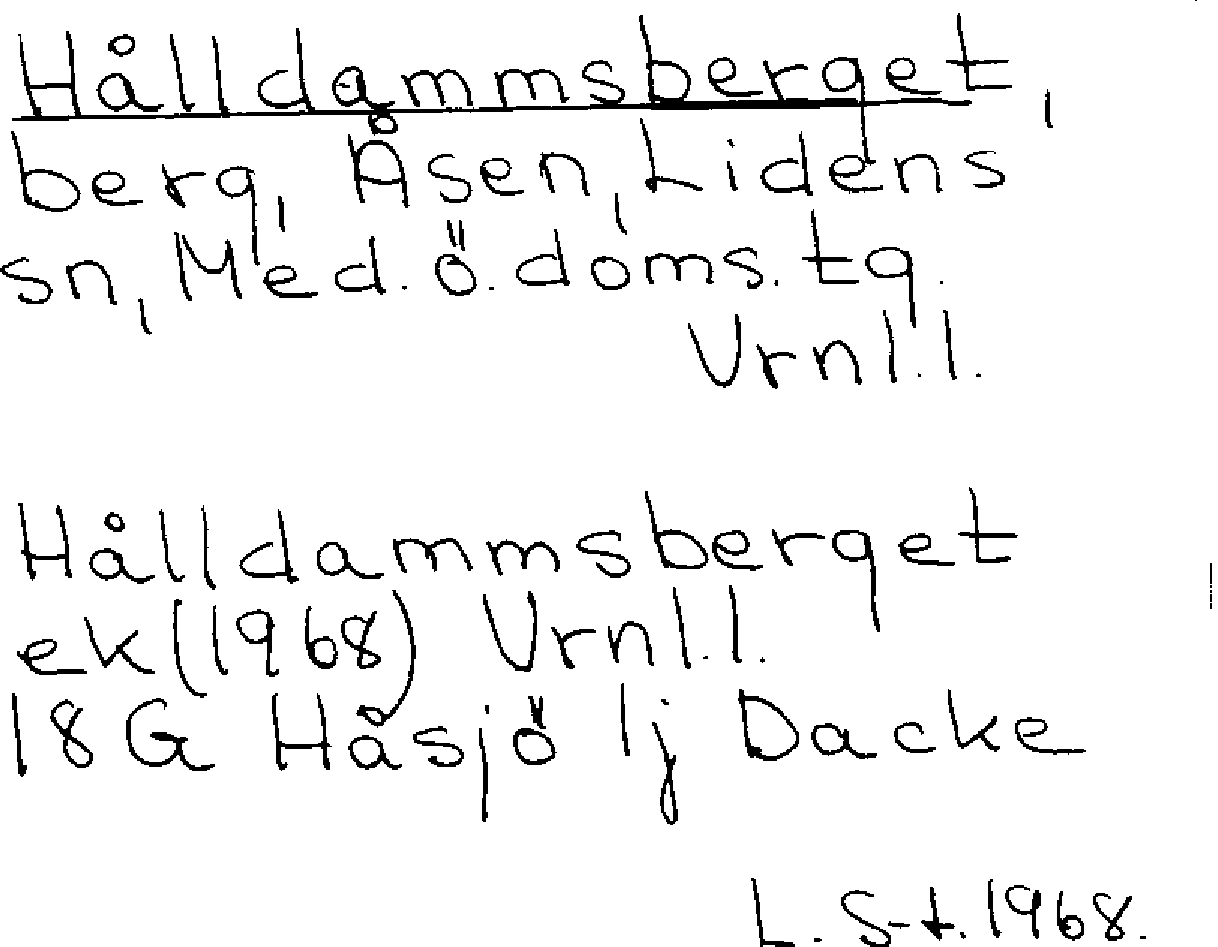 Hålldammsberget,
berg, Åsen, Lidens
sn, Med. ö. doms. tg.
Vrnl.l.
Hålldammsberget
ek (1968) Vrnl.l.
18G Håsjö 1j Dacke
L. S-t. 1968.